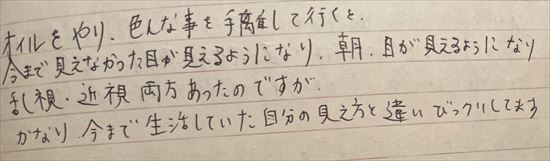 オイルをやり、色んな事を手離して行くと、
今まで見えなかった目が見えるようになり、朝、目が見えるようになり
乱視・近視両方あったのですが、
かなり、今まで生活していた自分の見え方と違いびっくりしてます